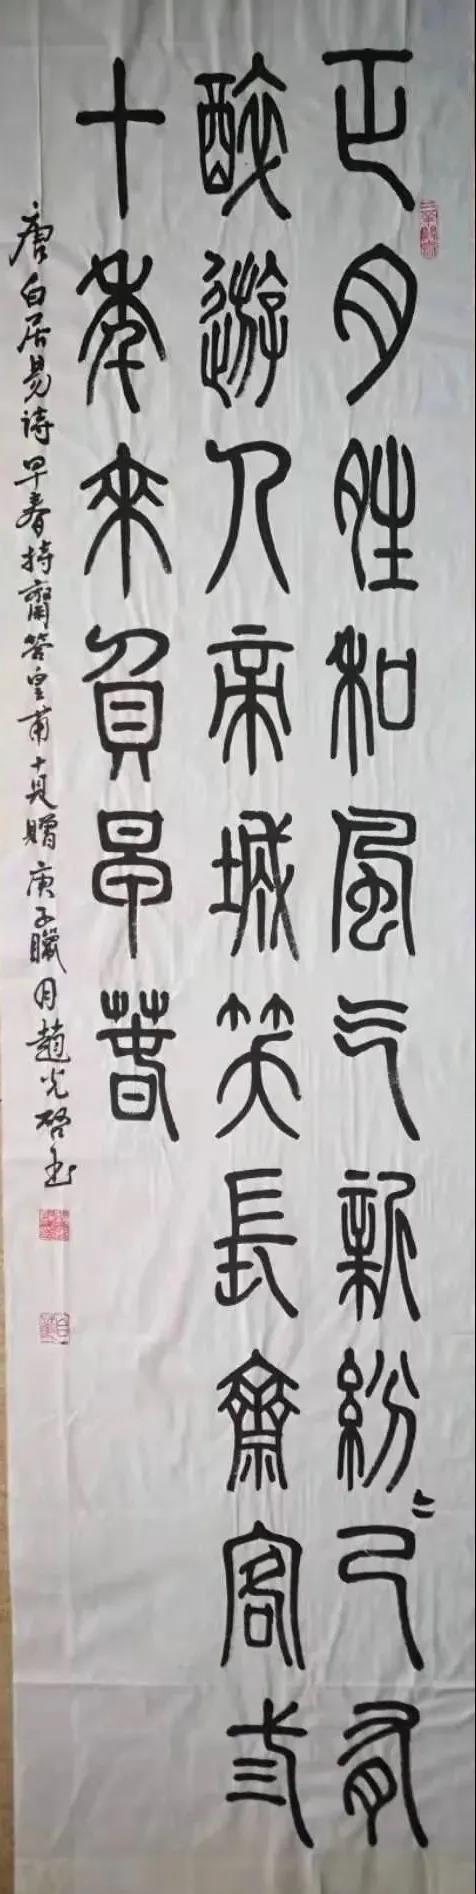 正月晴和風气新紛〻已有
醉遊人帝城笑長齋客弎
十年來負早春
唐白居易诗早春持齋答皇甫十見贈庚子臘月趙光啓书